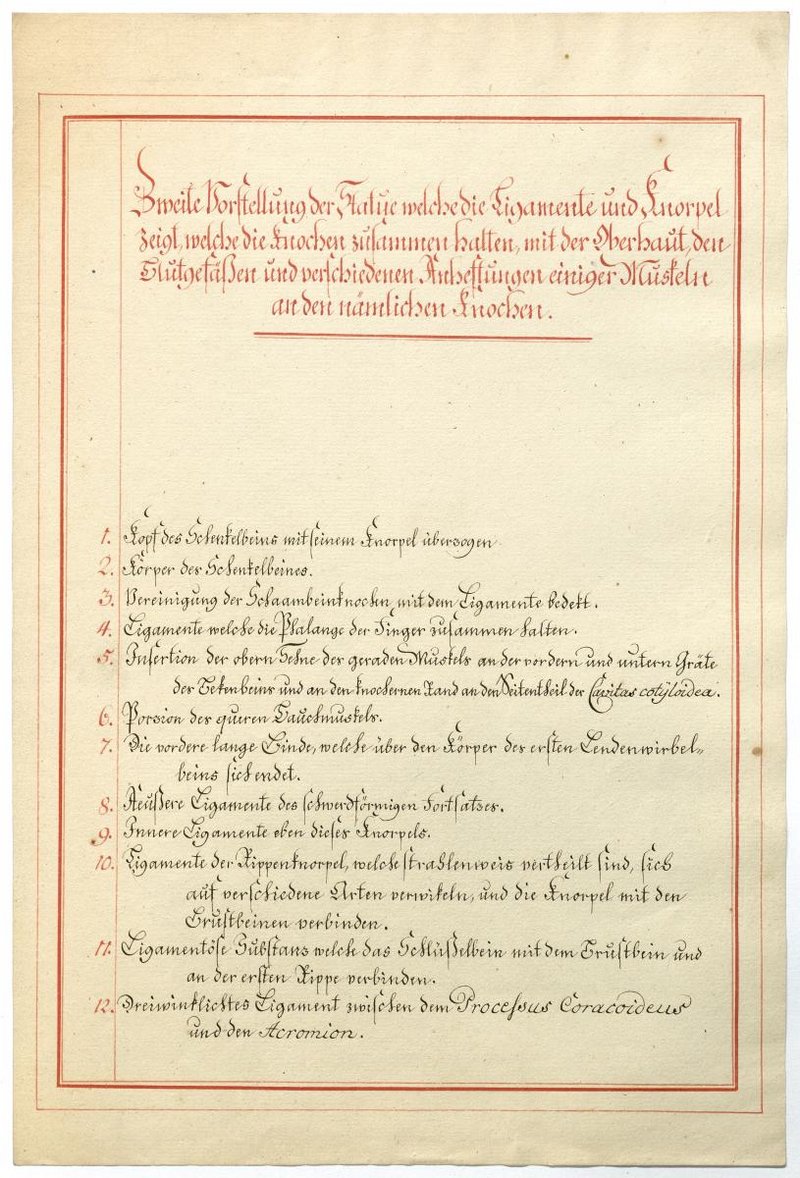 Zweite Vorstellung der Statue welche die Ligamente und Knorpel
zeigt, welche die Knochen zusammen halten, mit der Oberhaut, den
Blutgefäßen und verschiedenen Anheftungen einiger Muskeln
an den nämlichen Knochen.
1. Kopf des Schenkelbeins mit seinem Knorpel überzogen
2. Körper des Schenkelbeines.
3. Vereinigung der Schaambeinknochen, mit dem Ligamente bedekt.
4. Ligamente welche die Phalange der Finger zusammen halten.
5. Insertion der obern Sehne des geraden Muskels an der vordern und untern Gräte
des Bekenbeins und an den knochernen Rand an den Seitentheil der Cavitas cotyloidea.
6. Porzion des queren Bauchmuskels.
7. Die vordere lange Binde, welche über den Körper des ersten Lendenwirbel„
beins sich endet.
8. Aeußere Ligamente des schwerdförmigen Fortsatzes.
9. Innere Ligamente eben dieses Knorpels.
10. Ligamente der Rippenknorpel, welche strahlenweis vertheilt sind, sich
auf verschiedene Arten verwikeln, und die Knorpel mit den
Brustbeinen verbinden.
11. Ligamentöse Substanz welche das Schlüßelbein mit dem Brustbein und
an der ersten Rippe verbinden.
12. Dreiwinklichtes Ligament zwischen dem Processus Coracoideus
und den Acromion.